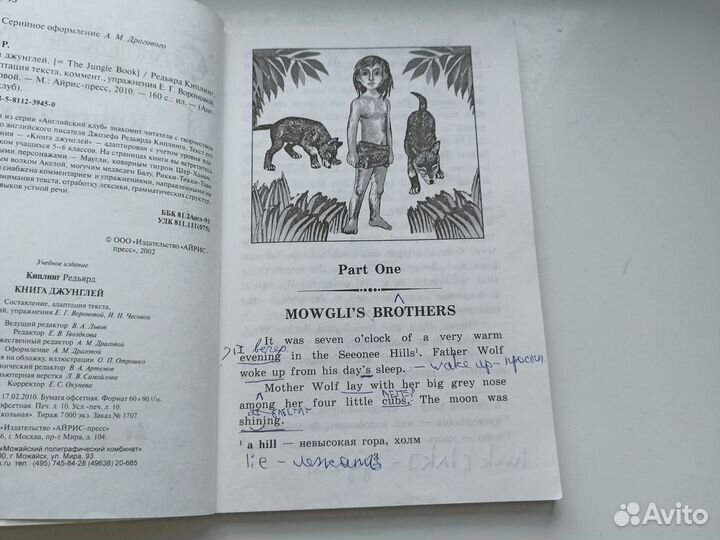 Серийное оформление А. М. Драгового
Р.
джунглей. [= The Jungle Book] / Редьярд Киплинг
текста, коммент., упражнения Е. Г. Вороновой,
— М.: Айрис-пресс, 2010. — 160 с.: ил. — (Анг-
клуб).
5-8112-3945-0
из серии «Английский клуб» знакомит читателя с творчеством
английского писателя Джозефа Редьярда Киплинга. Текст его
— «Книга джунглей» — адаптирован с учетом уровня
учащихся 5–6 классов. На страницах книги вы встретитесь
персонажами — Маугли, коварным тигром Шер-Ханом,
волком Акелой, могучим медведем Балу, Рикки-Тикки-Тави
снабжена комментарием и упражнениями, направленными на
понимания текста, отработку лексики, грамматических структур,
навыков устной речи.
ББК 81.2Англ-93
УДК 811.111(075)
© ООО «Издательство «АЙРИС-
пресс», 2002
Учебное издание
Киплинг Редьярд
КНИГА ДЖУНГЛЕЙ
Составление, адаптация текста,
упражнения Е. Г. Вороновой, Н. Н. Чесовой
Ведущий редактор В. А. Львов
Редактор Е. В. Гвоздкова
редактор А. М. Драговой
Оформление А. М. Драговой
на обложку, иллюстрации О. П. Отрошко
редактор В. А. Артемов
верстка Л. В. Самойлова
Корректор Е. С. Окунева
17.02.2010. Бумага офсетная. Формат 60×90 1/16.
офсетная. Печ. л. 10. Усл.-печ. л. 10.
Тираж 7000 экз. Заказ № 1707.
«Издательство «АЙРИС-пресс»
г. Москва, пр-т Мира, д. 104.
«Можайский полиграфический комбинат»
г. Можайск, ул. Мира, 93.
тел.: (495) 745-84-28 (49638) 20-685
Part One
MOWGLI'S BROTHERS
It was seven o'clock of a very warm
evening in the Seeonee Hills¹. Father Wolf
woke up from his day's sleep. – wake up –
Mother Wolf lay with her big grey nose
among her four little cubs. The moon was
shining.
¹ a hill — невысокая гора, холм
3
lie – лежать
Avito